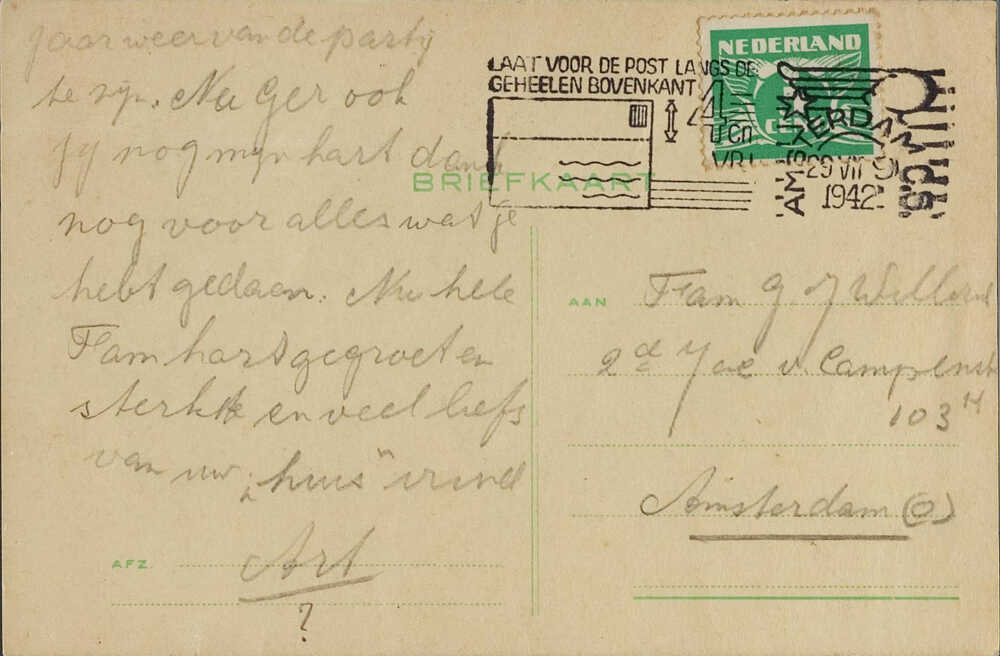 jaar weer van de partij
te zijn. Nu Ger ook
jij nog mijn hart dank
nog voor alles wat je
hebt gedaan. Nu hele
Fam hart gegroet en
sterkte en veel liefs
van uw „huis" vriend
Art
?
AFZ.
BRIEFKAART
LAAT VOOR DE POST LANGS DE
GEHEELEN BOVENKANT
4
CM
VRIJ
NEDERLAND
AMSTERDAM
29 VII
1942
AAN
Fam G J
2d Jac v. Campenstr
103 H
Amsterdam (O)